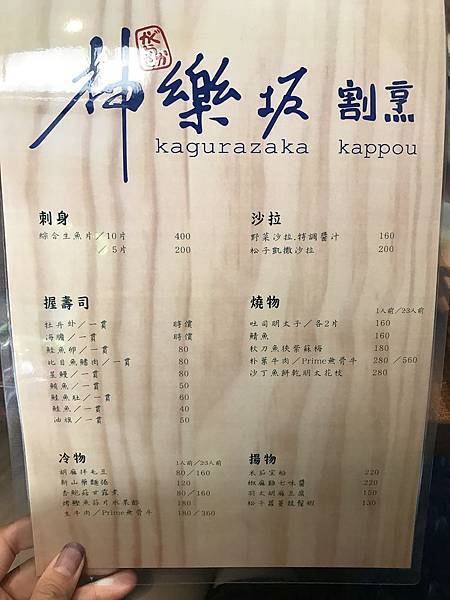 神樂坂 割烹
kagurazaka kappou
刺身
綜合生魚片／10片 400
／5片 200
沙拉
野菜沙拉.特調醬汁 160
松子凱撒沙拉 200
握壽司
牡丹蝦／一貫 時價
海膽／一貫 時價
鮭魚卵／一貫 80
比目魚鰭肉／一貫 80
星鰻／一貫 80
鮪魚／一貫 50
鮭魚肚／一貫 60
鮭魚／一貫 40
油旗／一貫 50
燒物
1人前／23人前
吐司明太子／各2片 160
鯖魚 160
秋刀魚挾紫蘇梅 180
朴葉牛肉／Prime無骨牛 280／560
沙丁魚餅乾明太花枝 280
冷物
1人前／23人前
胡麻拌毛豆 80／160
新山藥麵捲 120
杏鮑菇甘露煮 80／160
烤鰹魚茄片水果醋 180
生牛肉／Prime無骨牛 180／360
揚物
米茄宝船 220
椒麻雞七味醬 220
羽太胡麻豆腐 130
松子 蝦 150